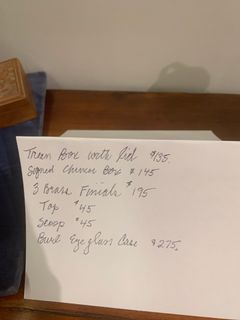 Treen Box with lid $135.
Signed Chinese Box $145
3 Brass Finials $195
Top $45
Scoop $45
Burl Eyeglass Case $275.